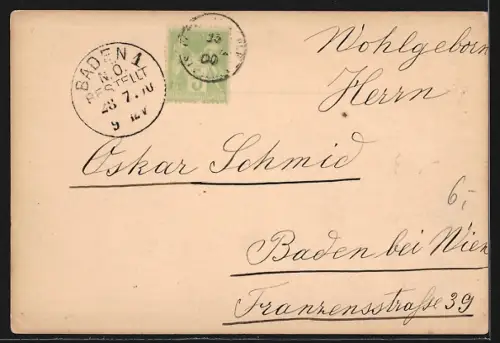 Wohlgeborn
Herrn
Oskar Schmid
6,-
Baden bei Wien
Franzensstraße 39
BADEN 1
N.Ö.
BESTELLT
28 7.
9
5